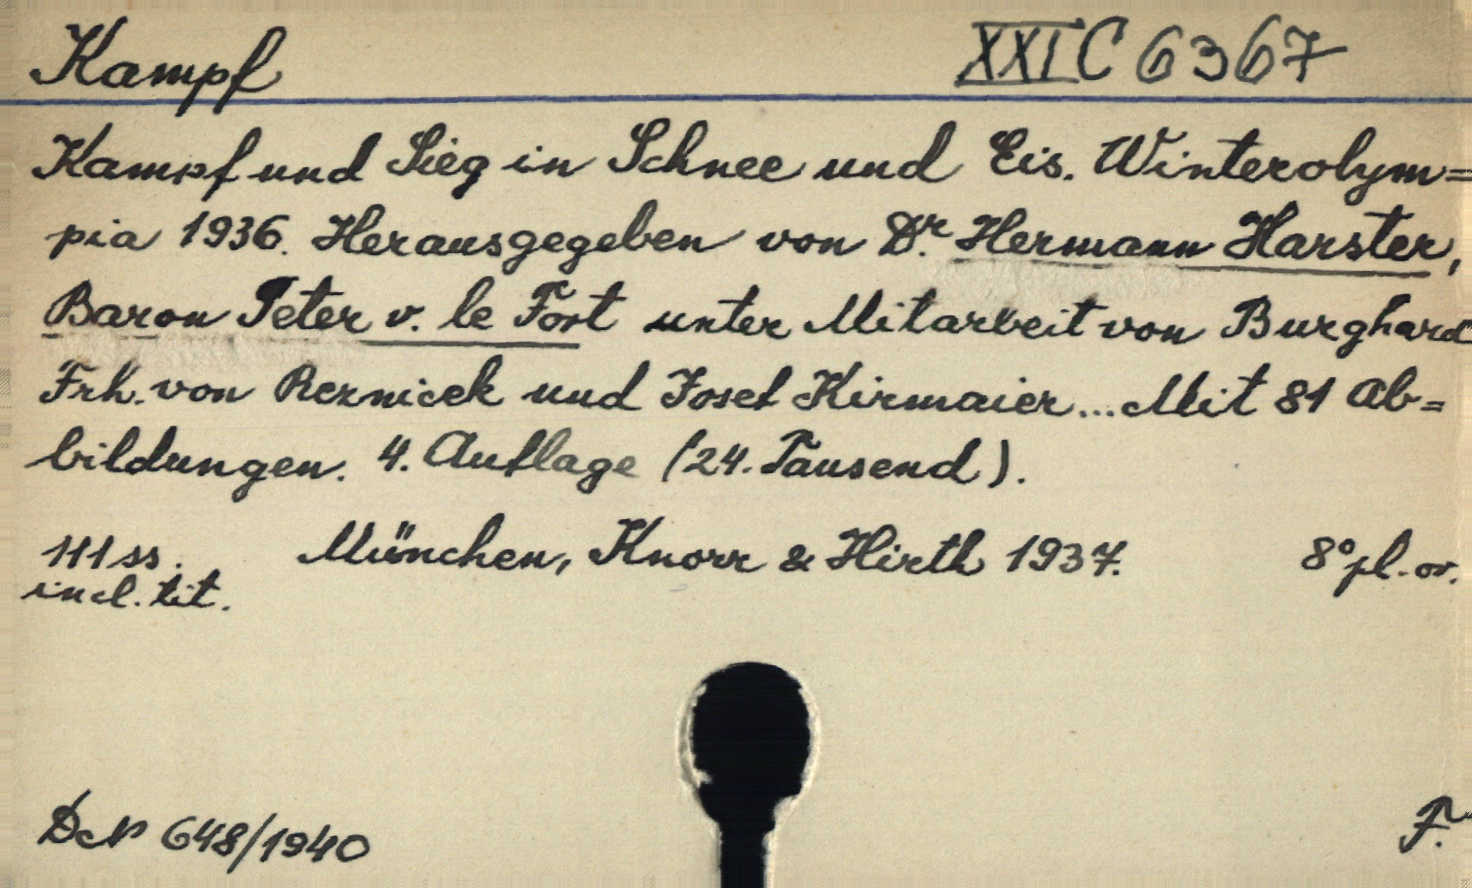 Kampf XXI C 6367
Kampf und Sieg in Schnee und Eis. Winterolym=
pia 1936. Herausgegeben von Dr. Hermann Harster,
Baron Peter v. le Fort unter Mitarbeit von Burghard
Frh. von Reznicek und Josef Kirmaier... Mit 81 Ab=
bildungen. 4. Auflage (24. Tausend).
111 ss. München, Knorr & Hirth 1937. 8° pl. or.
incl. tit.
648/1940 F.